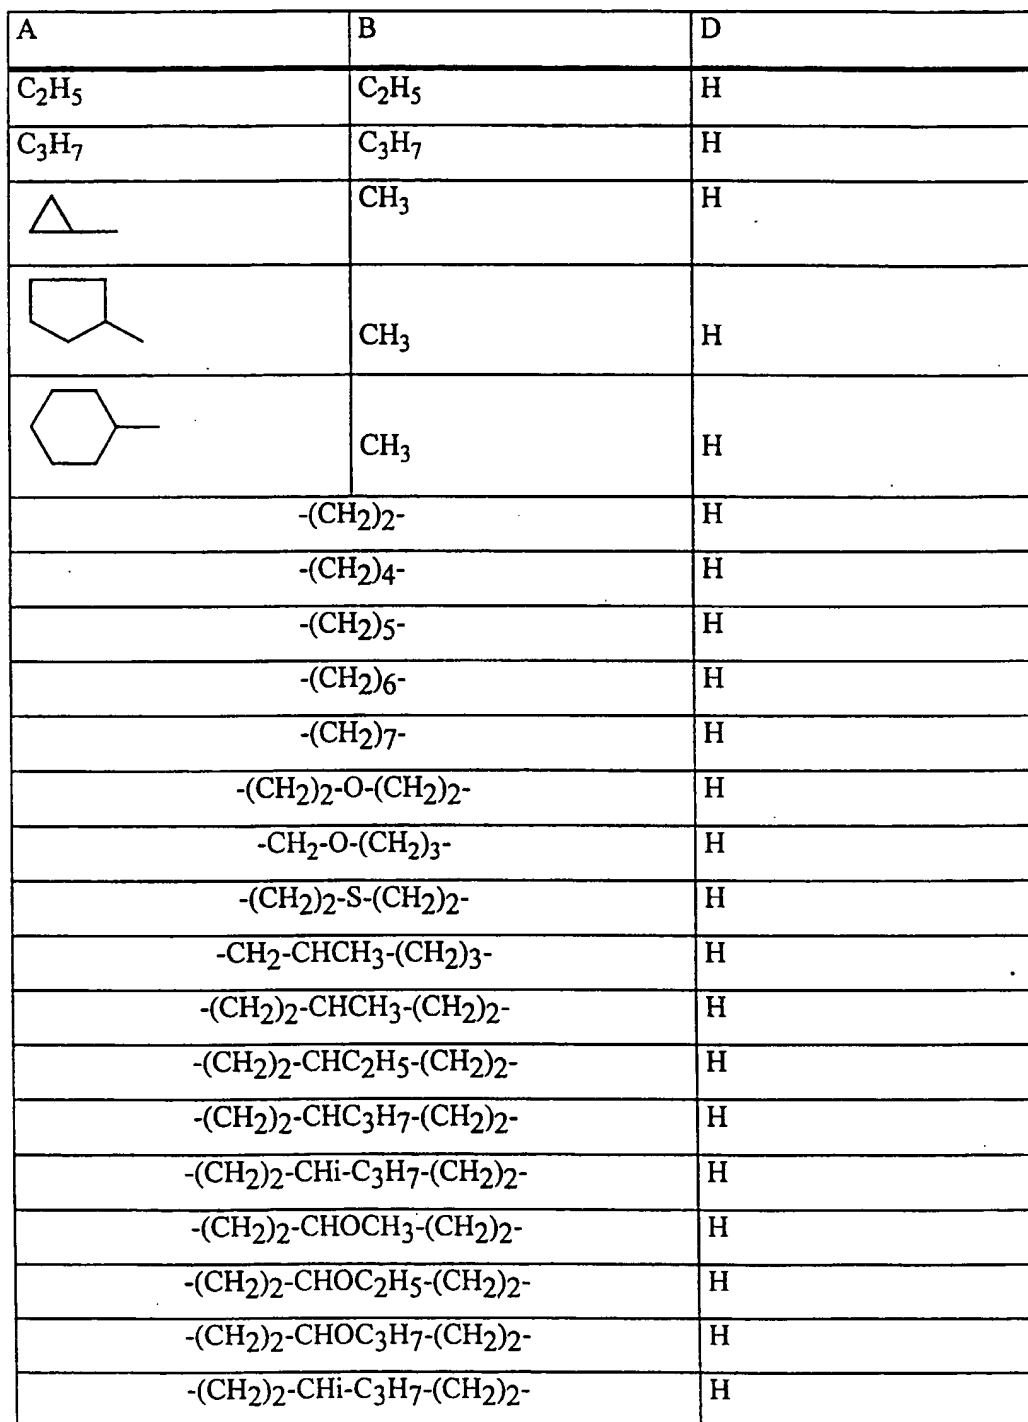 A B D
C₂H₅ C₂H₅ H
C₃H₇ C₃H₇ H
CH₃ H
CH₃ H
CH₃ H
-(CH₂)₂- H
-(CH₂)₄- H
-(CH₂)₅- H
-(CH₂)₆- H
-(CH₂)₇- H
-(CH₂)₂-O-(CH₂)₂- H
-CH₂-O-(CH₂)₃- H
-(CH₂)₂-S-(CH₂)₂- H
-CH₂-CHCH₃-(CH₂)₃- H
-(CH₂)₂-CHCH₃-(CH₂)₂- H
-(CH₂)₂-CHC₂H₅-(CH₂)₂- H
-(CH₂)₂-CHC₃H₇-(CH₂)₂- H
-(CH₂)₂-CHi-C₃H₇-(CH₂)₂- H
-(CH₂)₂-CHOCH₃-(CH₂)₂- H
-(CH₂)₂-CHOC₂H₅-(CH₂)₂- H
-(CH₂)₂-CHOC₃H₇-(CH₂)₂- H
-(CH₂)₂-CHi-C₃H₇-(CH₂)₂- H